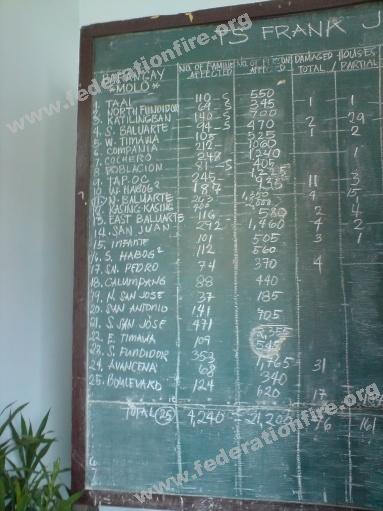 TS FRANK
BARANGAY
*MOLO*
NO. OF FAMILIES AFFECTED
NO. OF PERSONS AFFECTED
DAMAGED HOUSES
TOTAL / PARTIAL
1. TAAL 110-S 550 1 1
2. NORTH FUNDIDOR 69-S 345
3. KATILINGBAN 140-S 700 1 29
4. S. BALUARTE 94-S 470 2 2
5. W. TIMAWA 105 525 1
6. COMPANIA 212 1060
7. COCHERO 248 1240 1
8. POBLACION 81-S 405
9. TAP-OC 245 1,225 11 3
10. W. HABOG² 187 935 15
11. N. BALUARTE
12. KASING-KASING
13. EAST BALUARTE 116 580 2 4
14. SAN JUAN 292 1,460 4 2
15. INFANTE 101 505 3 1
16. S. HABOG² 112 560
17. SN. PEDRO 74 370 4
18. CALUMPANG 88 440
19. N. SAN JOSE 37 185
20. SAN ANTONIO 141 705
21. S. SAN JOSE 471 2,355
22. E. TIMAWA 109 545
23. S. FUNDIDOR 353 1,765 31
24. AVANCEÑA 68 340
25. BOULEVARD 124 620 17
TOTAL (25) 4,240 76 161
www.federationfire.org
www.federationfire.org
www.federationfire.org